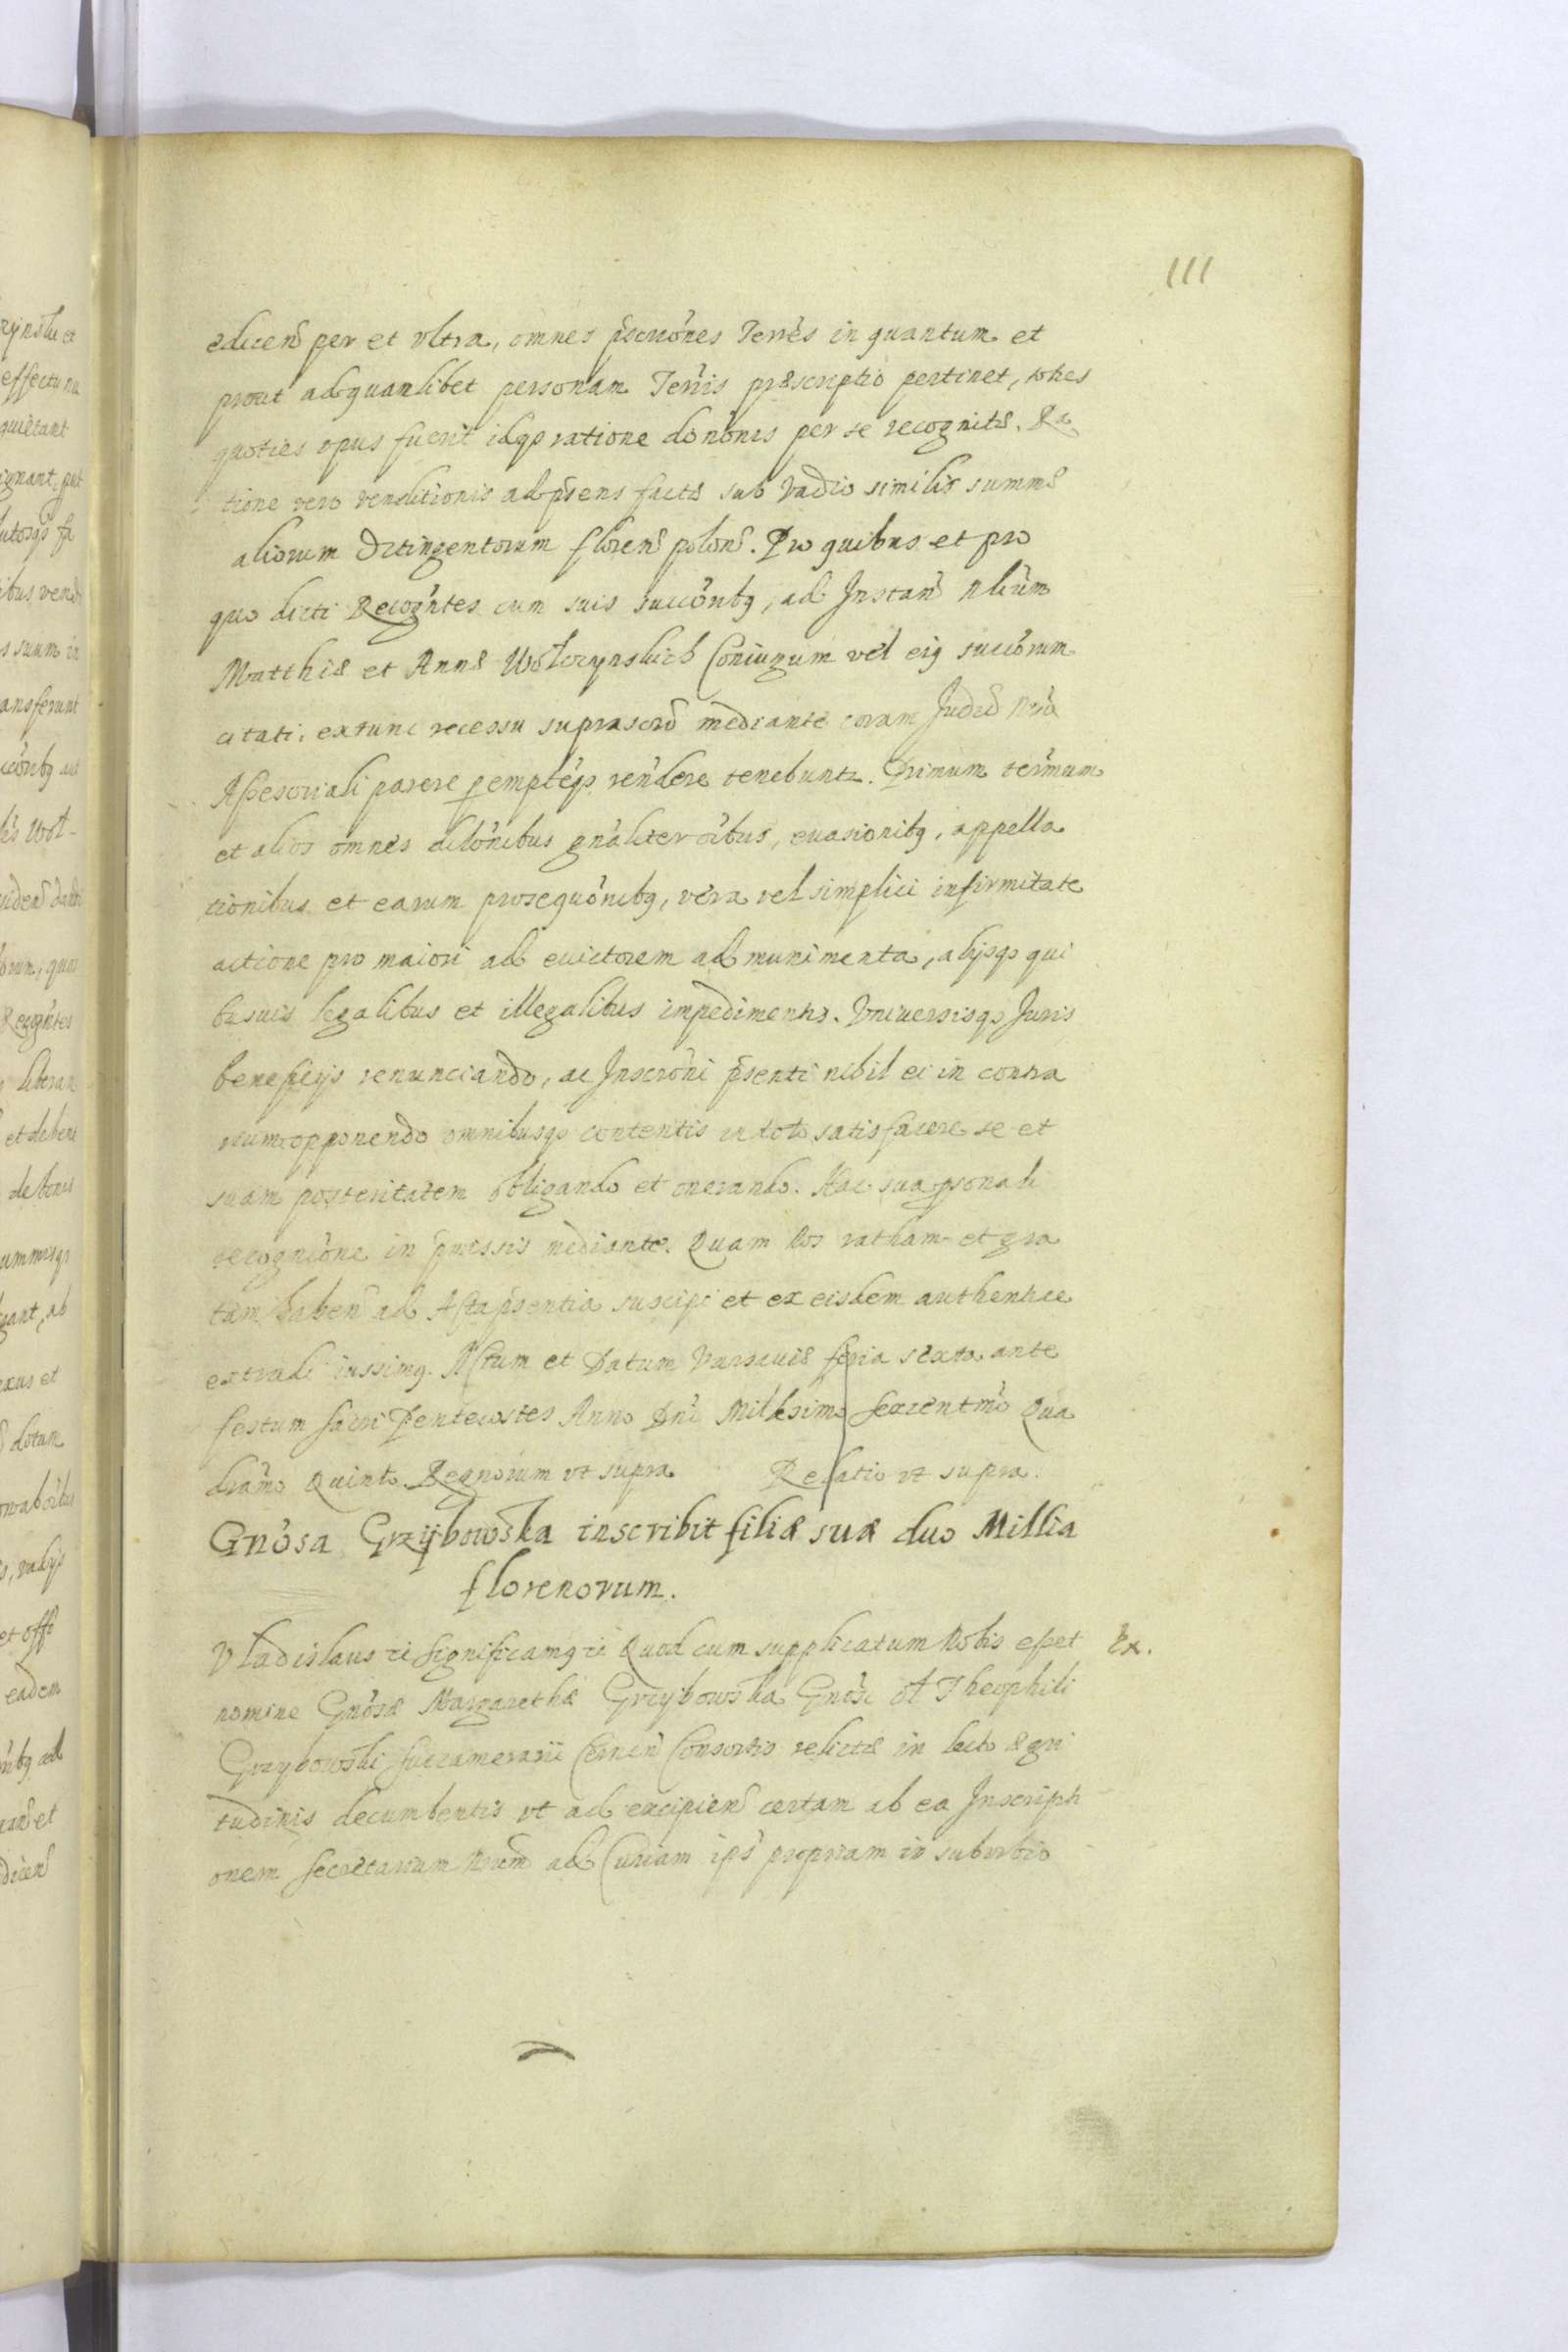 111
edicen̄ per et vltra, omnes p̄scriōnes Terr̄es in quantum et
prout ad quamlibet personam Terr̄is præscriptio pertinet, toties
quoties opus fuerit idq3 ratione donōnis per se recognitæ. Ra
tione vero venditionis ad p̄sens factæ sub vadio similis summæ
aliorum Octingentorum floren̄ polon̄. Pro quibus et pro
quo dicti Recogn̄tes cum suis succōrib9, ad Instan̄ Nliūm
Matthiæ et Annæ Wolczynskich Coniugum vel ei9 succōrum
citati, extunc recessu suprascrō mediante coram Judō Nrō
Assessoriali parere p̱empteq3 rendere tenebuntr. Primum terminum
et alios omnes dilōnibus gn̄aliter oībus, euasionib9, appella
tionibus et earum prosequōnib9, vera vel simplici infirmitate
actione pro maiori ad euictorem ad munimenta, alijsq3 qui
busuis legalibus et illegalibus impedimentis. Vniuersisq3 Juris
beneficijs renunciando, ac Inscrōni p̄senti nihil ei in contra
rium opponendo omnibusq3 contentis in toto satisfacere se et
suam posteritatem obligando et onerando. Hac sua p̱sonali
recogniōne in p̄missis mediante. Quam Nos ratham et gra
tam haben̄ ad Acta p̄sentia suscipi et ex eisdem authentice
extradi iussim9. Actum et Datum Varsauiæ feria sexta ante
festum sacri Pentecostes Anno Dn̄i Millesimo sexcentmō Qua
dramō Quinto Regnorum vt supra Relatio vt supra.
Gn̄osa Grzybowska inscribit filiæ suæ duo Millia
florenorum.
Vladislaus rc significam9 rc Quod cum supplicatum Nobis esset
Ex.
nomine Gn̄osæ Margarethæ Grzybowska Gn̄osi ol Theophili
Grzybowski succamerarii Cernen̄ Consortis relictæ in lecto ægri
tudinis decumbentis vt ad excipien̄ certam ab ea Inscripti
onem secretarium Nrūm ad Curiam ips̄ propriam in suburbio